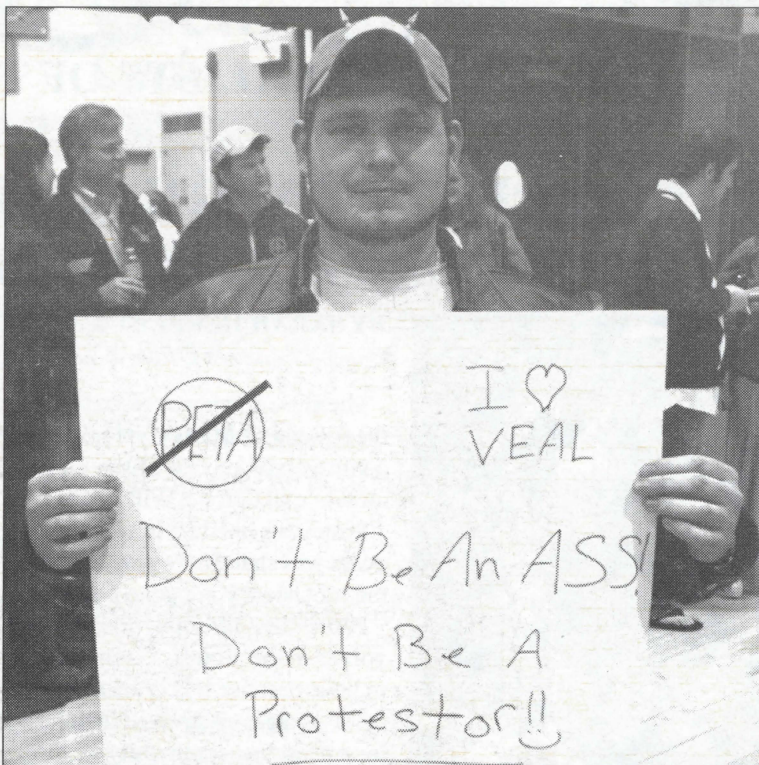 PETA
I ♡
VEAL
Don't Be An ASS!
Don't Be A
Protestor!!